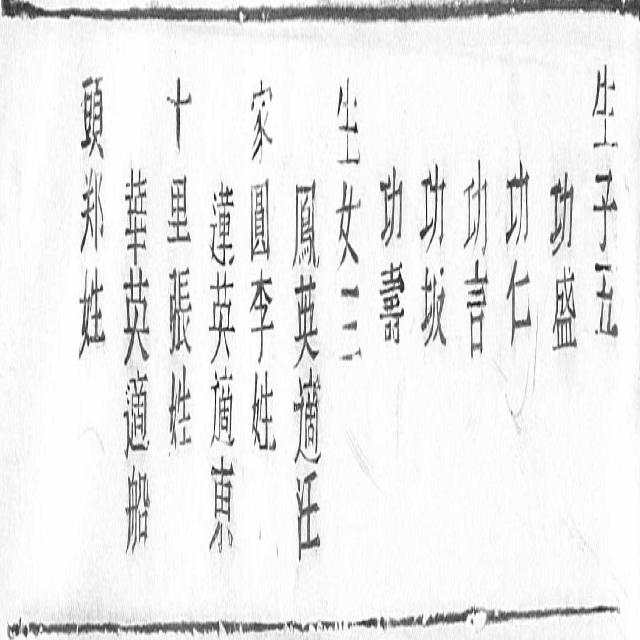 生子五
功盛
功仁
功言
功坂
功壽
生女三
鳳英適汪
家圓李姓
蓮英適東
十里張姓
華英適船
頭郑姓